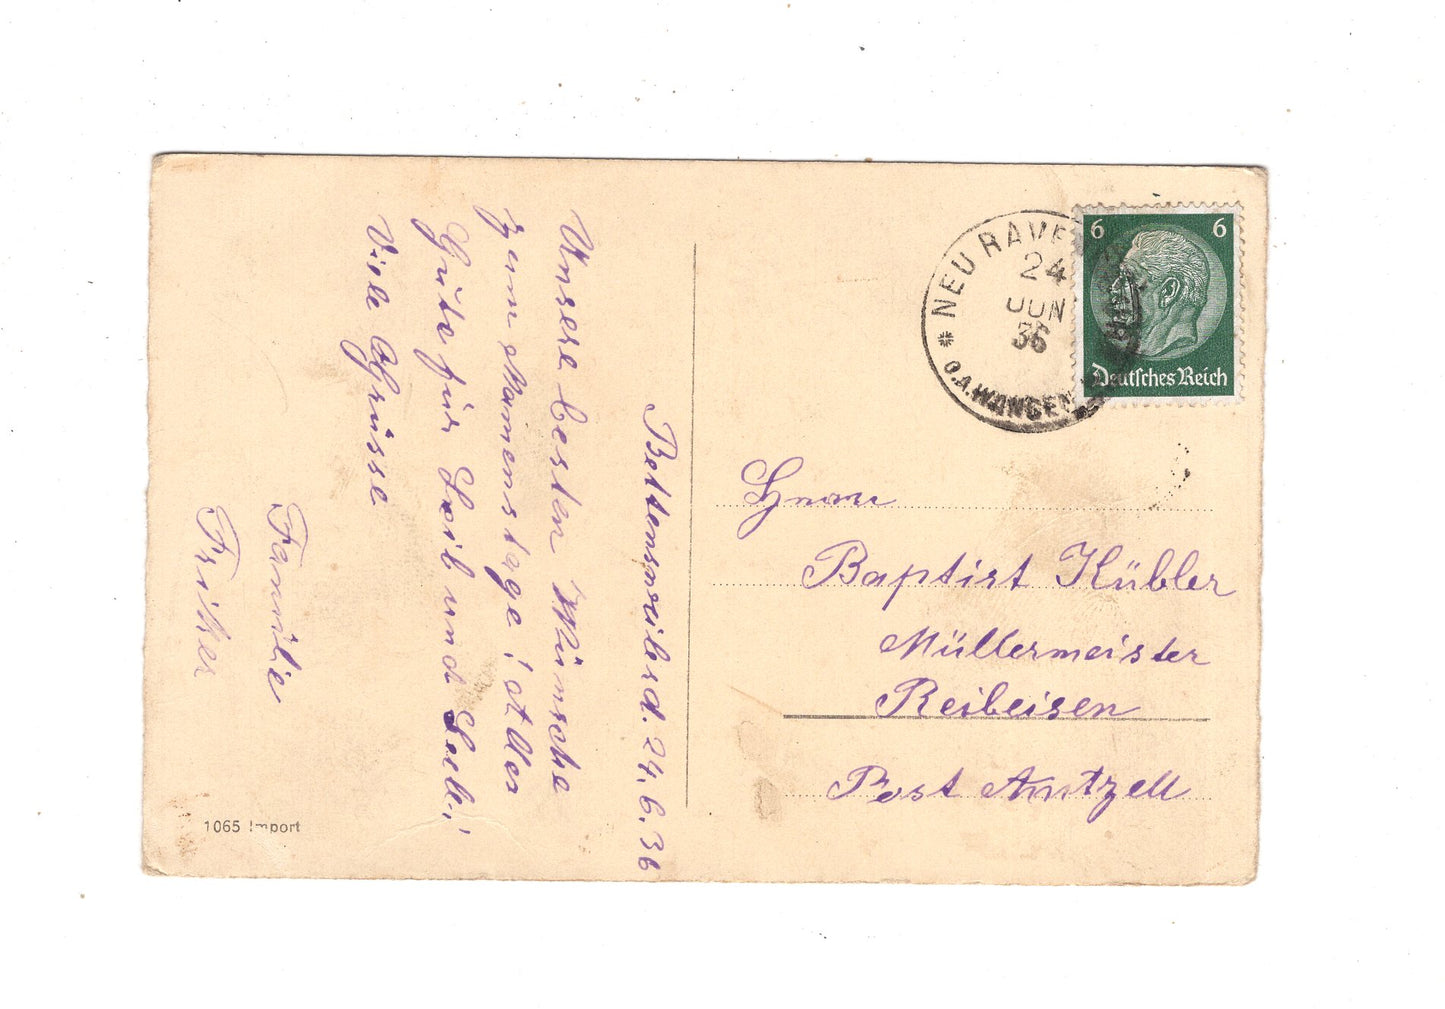 Bettensweilerd. 24.6.36
Unsere besten Wünsche
zum Namenstage! Alles
Gute für Leib und Seele!
Viele Grüsse
Familie
Friker
1065 Import
NEURAVE
24
JUN
36
O.A.WANGEN
6 6
Deutsches Reich
Herrn
Baptist Kübler
Müllermeister
Reibeisen
Post Amtzell